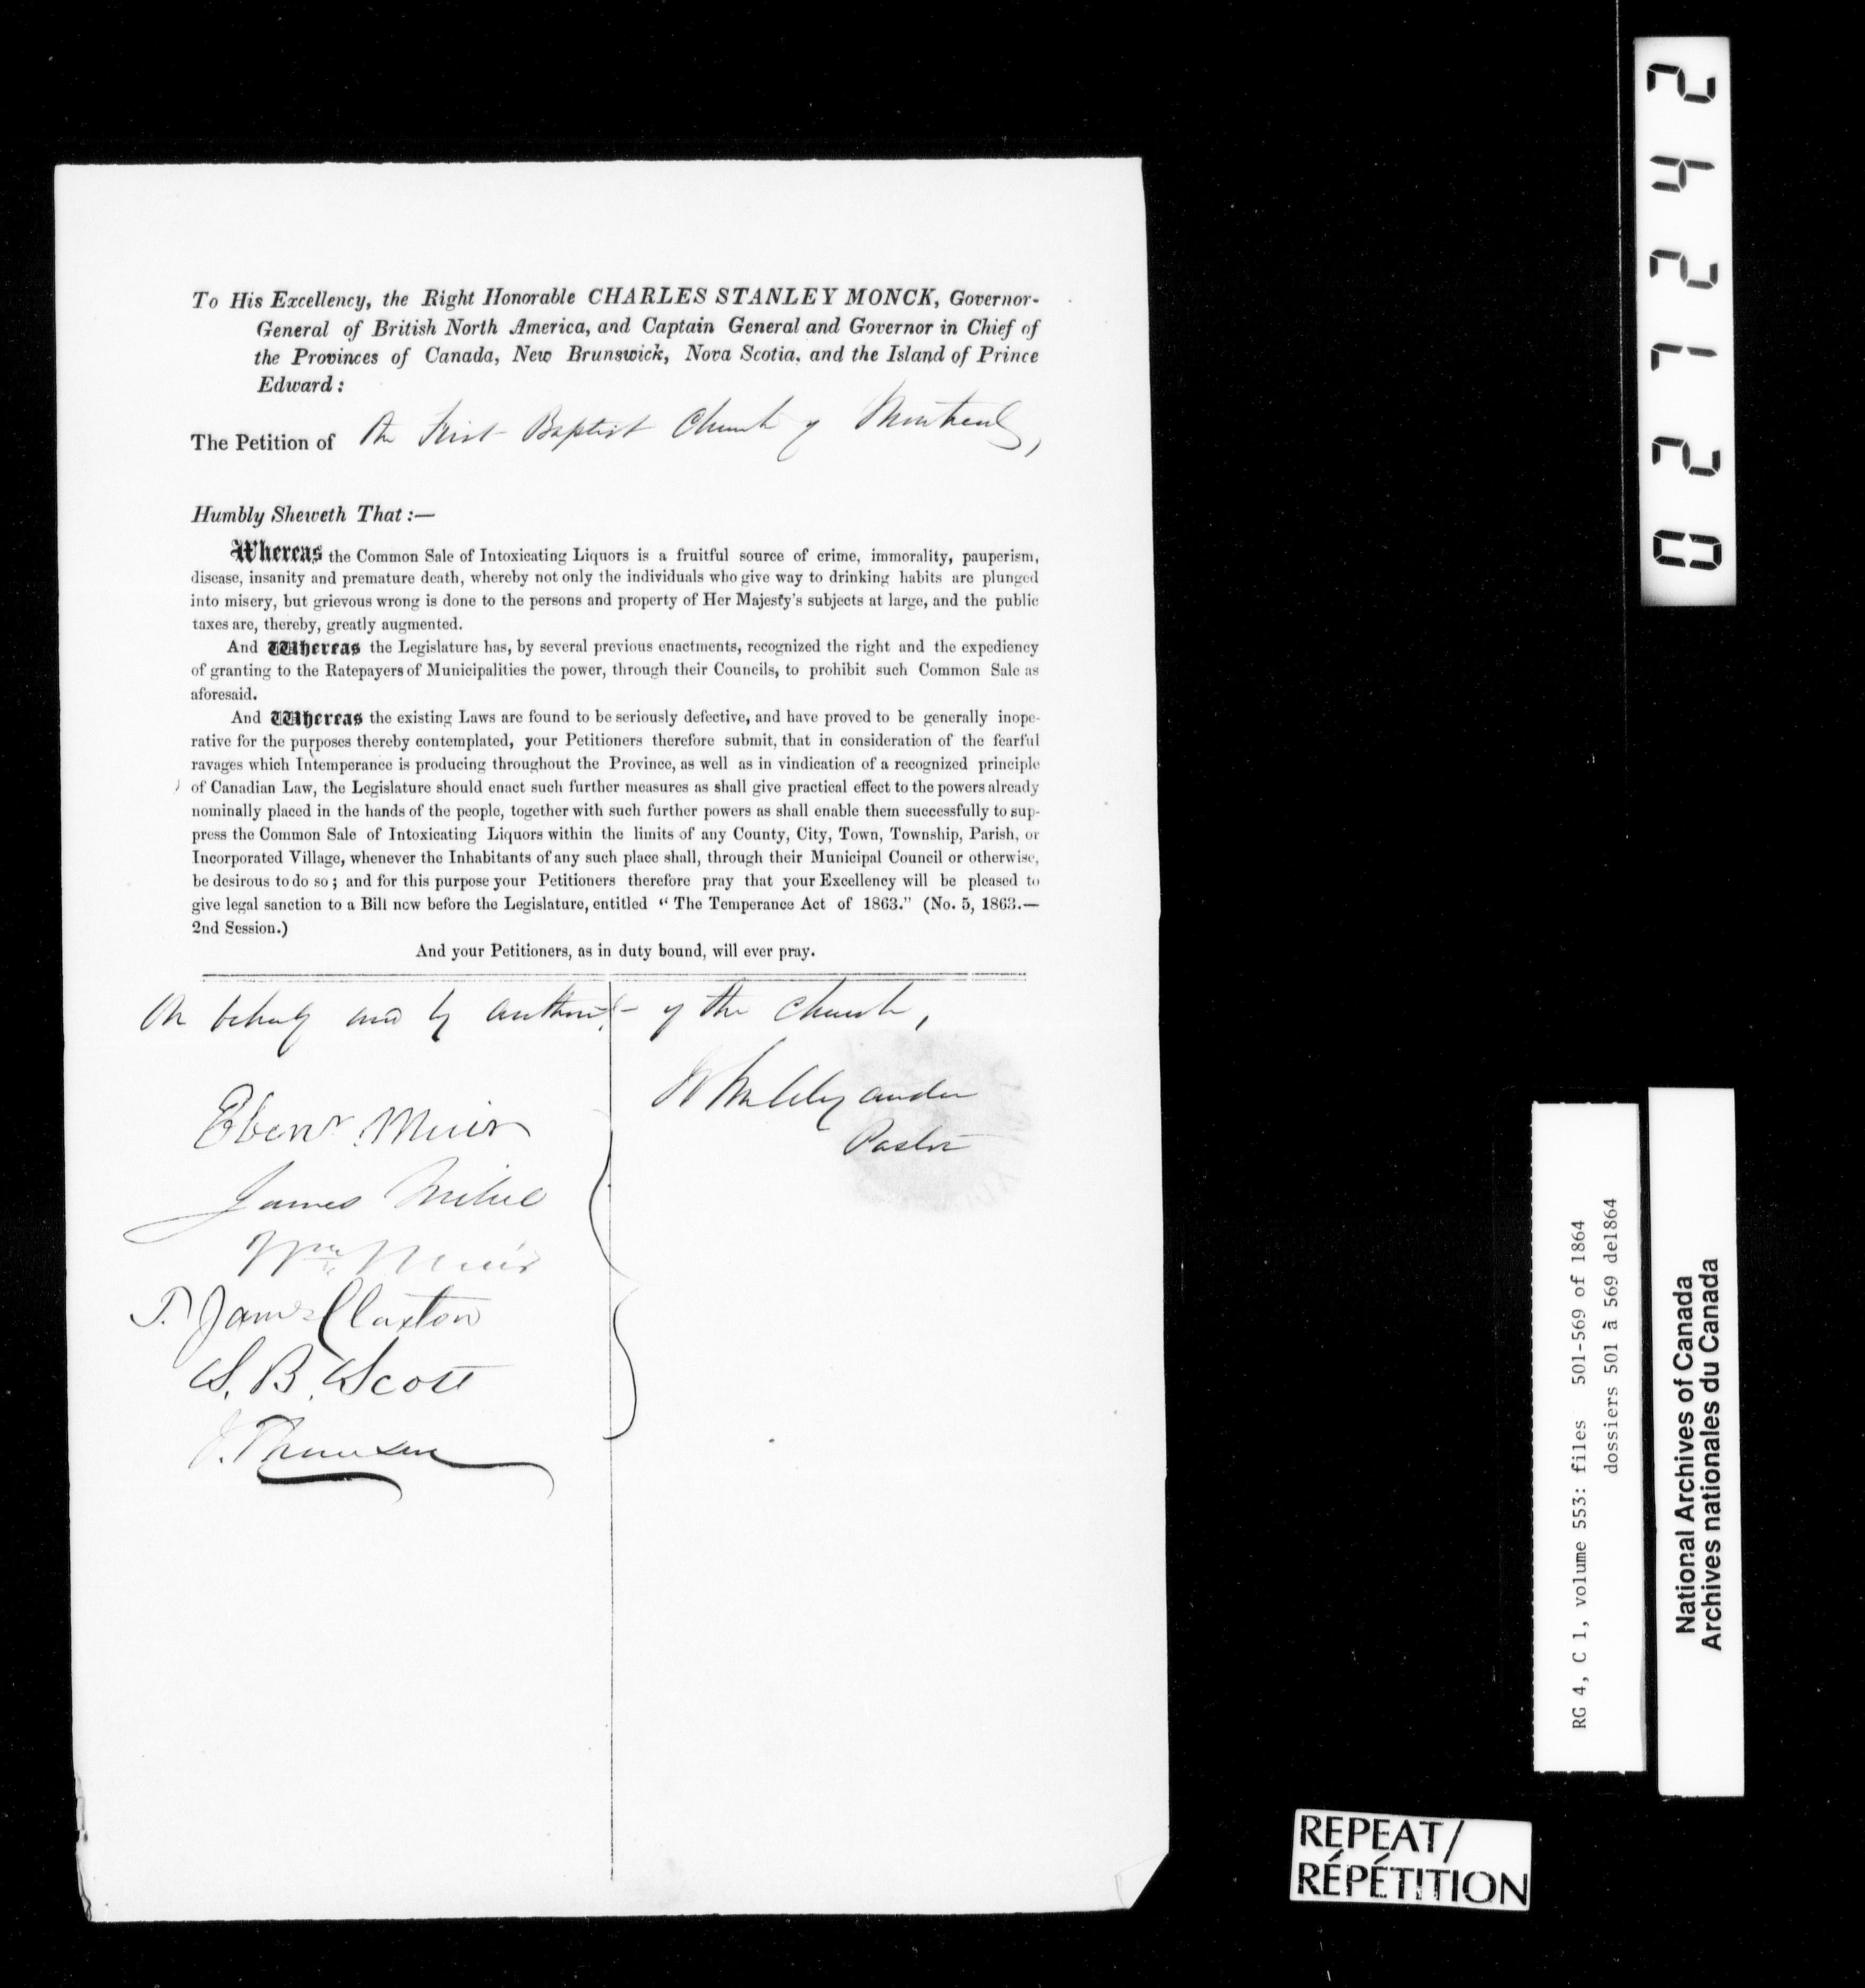 To His Excellency, the Right Honorable CHARLES STANLEY MONCK, Governor-
General of British North America, and Captain General and Governor in Chief of
the Provinces of Canada, New Brunswick, Nova Scotia, and the Island of Prince
Edward:
The Petition of the First Baptist Church of Montreal,
Humbly Sheweth That :—
Whereas the Common Sale of Intoxicating Liquors is a fruitful source of crime, immorality, pauperism,
disease, insanity and premature death, whereby not only the individuals who give way to drinking habits are plunged
into misery, but grievous wrong is done to the persons and property of Her Majesty's subjects at large, and the public
taxes are, thereby, greatly augmented.
And Whereas the Legislature has, by several previous enactments, recognized the right and the expediency
of granting to the Ratepayers of Municipalities the power, through their Councils, to prohibit such Common Sale as
aforesaid.
And Whereas the existing Laws are found to be seriously defective, and have proved to be generally inope-
rative for the purposes thereby contemplated, your Petitioners therefore submit, that in consideration of the fearful
ravages which Intemperance is producing throughout the Province, as well as in vindication of a recognized principle
of Canadian Law, the Legislature should enact such further measures as shall give practical effect to the powers already
nominally placed in the hands of the people, together with such further powers as shall enable them successfully to sup-
press the Common Sale of Intoxicating Liquors within the limits of any County, City, Town, Township, Parish, or
Incorporated Village, whenever the Inhabitants of any such place shall, through their Municipal Council or otherwise,
be desirous to do so ; and for this purpose your Petitioners therefore pray that your Excellency will be pleased to
give legal sanction to a Bill now before the Legislature, entitled “ The Temperance Act of 1863.” (No. 5, 1863.—
2nd Session.)
And your Petitioners, as in duty bound, will ever pray.
On behalf and by authority of the Church,
Alexander
Pastor
Ebenr Muir
James Milne
Wm Muir
T. James Claxton
S. B. Scott
J. Thomson
027242
RG 4, C 1, volume 553: files 501-569 of 1864
dossiers 501 à 569 de1864
National Archives of Canada
Archives nationales du Canada
REPEAT/
RÉPÉTITION